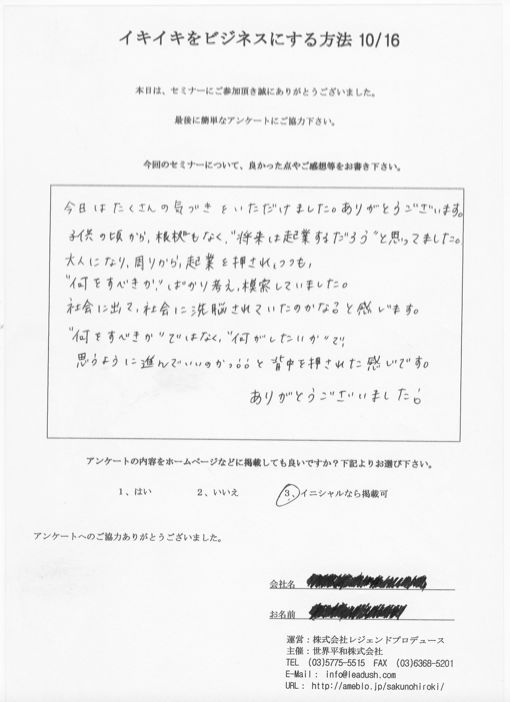 イキイキをビジネスにする方法 10/16
本日は、セミナーにご参加頂き誠にありがとうございました。
最後に簡単なアンケートにご協力下さい。
今回のセミナーについて、良かった点やご感想等をお書き下さい。
今日はたくさんの気づきをいただけました。ありがとうございます。
子供の頃から、根拠もなく、"将来は起業するだろう"と思ってました。
大人になり、周りから、起業を押されつつも、
"何をすべきか"ばかり考え、模索していました。
社会に出て、社会に洗脳されていたのかなぁと感じます。
"何をすべきか"ではなく、"何がしたいか"で、
思うように進んでいいのか。。。と背中を押された感じです。
ありがとうございました。
アンケートの内容をホームページなどに掲載しても良いですか?下記よりお選び下さい。
1、はい 2、いいえ 3、イニシャルなら掲載可
アンケートへのご協力ありがとうございました。
会社名
お名前
運営:株式会社レジェンドプロデュース
主催:世界平和株式会社
TEL (03)5775-5515 FAX (03)6368-5201
E-Mail: info@leadush.com
URL: http://ameblo.jp/sakunohiroki/